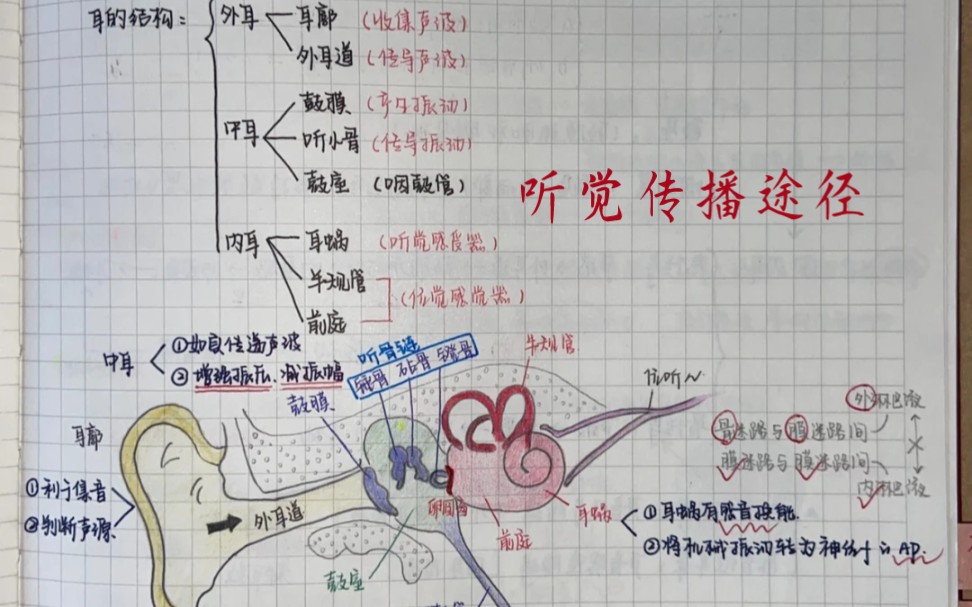 耳的结构:
外耳
耳廓 (收集声波)
外耳道 (传导声波)
中耳
鼓膜 (产生振动)
听小骨 (传导振动)
鼓室 (咽鼓管)
听觉传播途径
内耳
耳蜗 (听觉感受器)
半规管
前庭
(位觉感觉器)
中耳
①如负传递声波
②增强振压.减振幅
听骨链
锤骨 砧骨 镫骨
鼓膜
半规管
位听N
耳廓
①利于集音
②判断声源
外耳道
鼓室
卵圆窗
前庭
耳蜗
①耳蜗有感音换能
②将机械振动转为神经寸的AP.
骨迷路与膜迷路间
外淋巴液
膜迷路与膜迷路间
内淋巴液